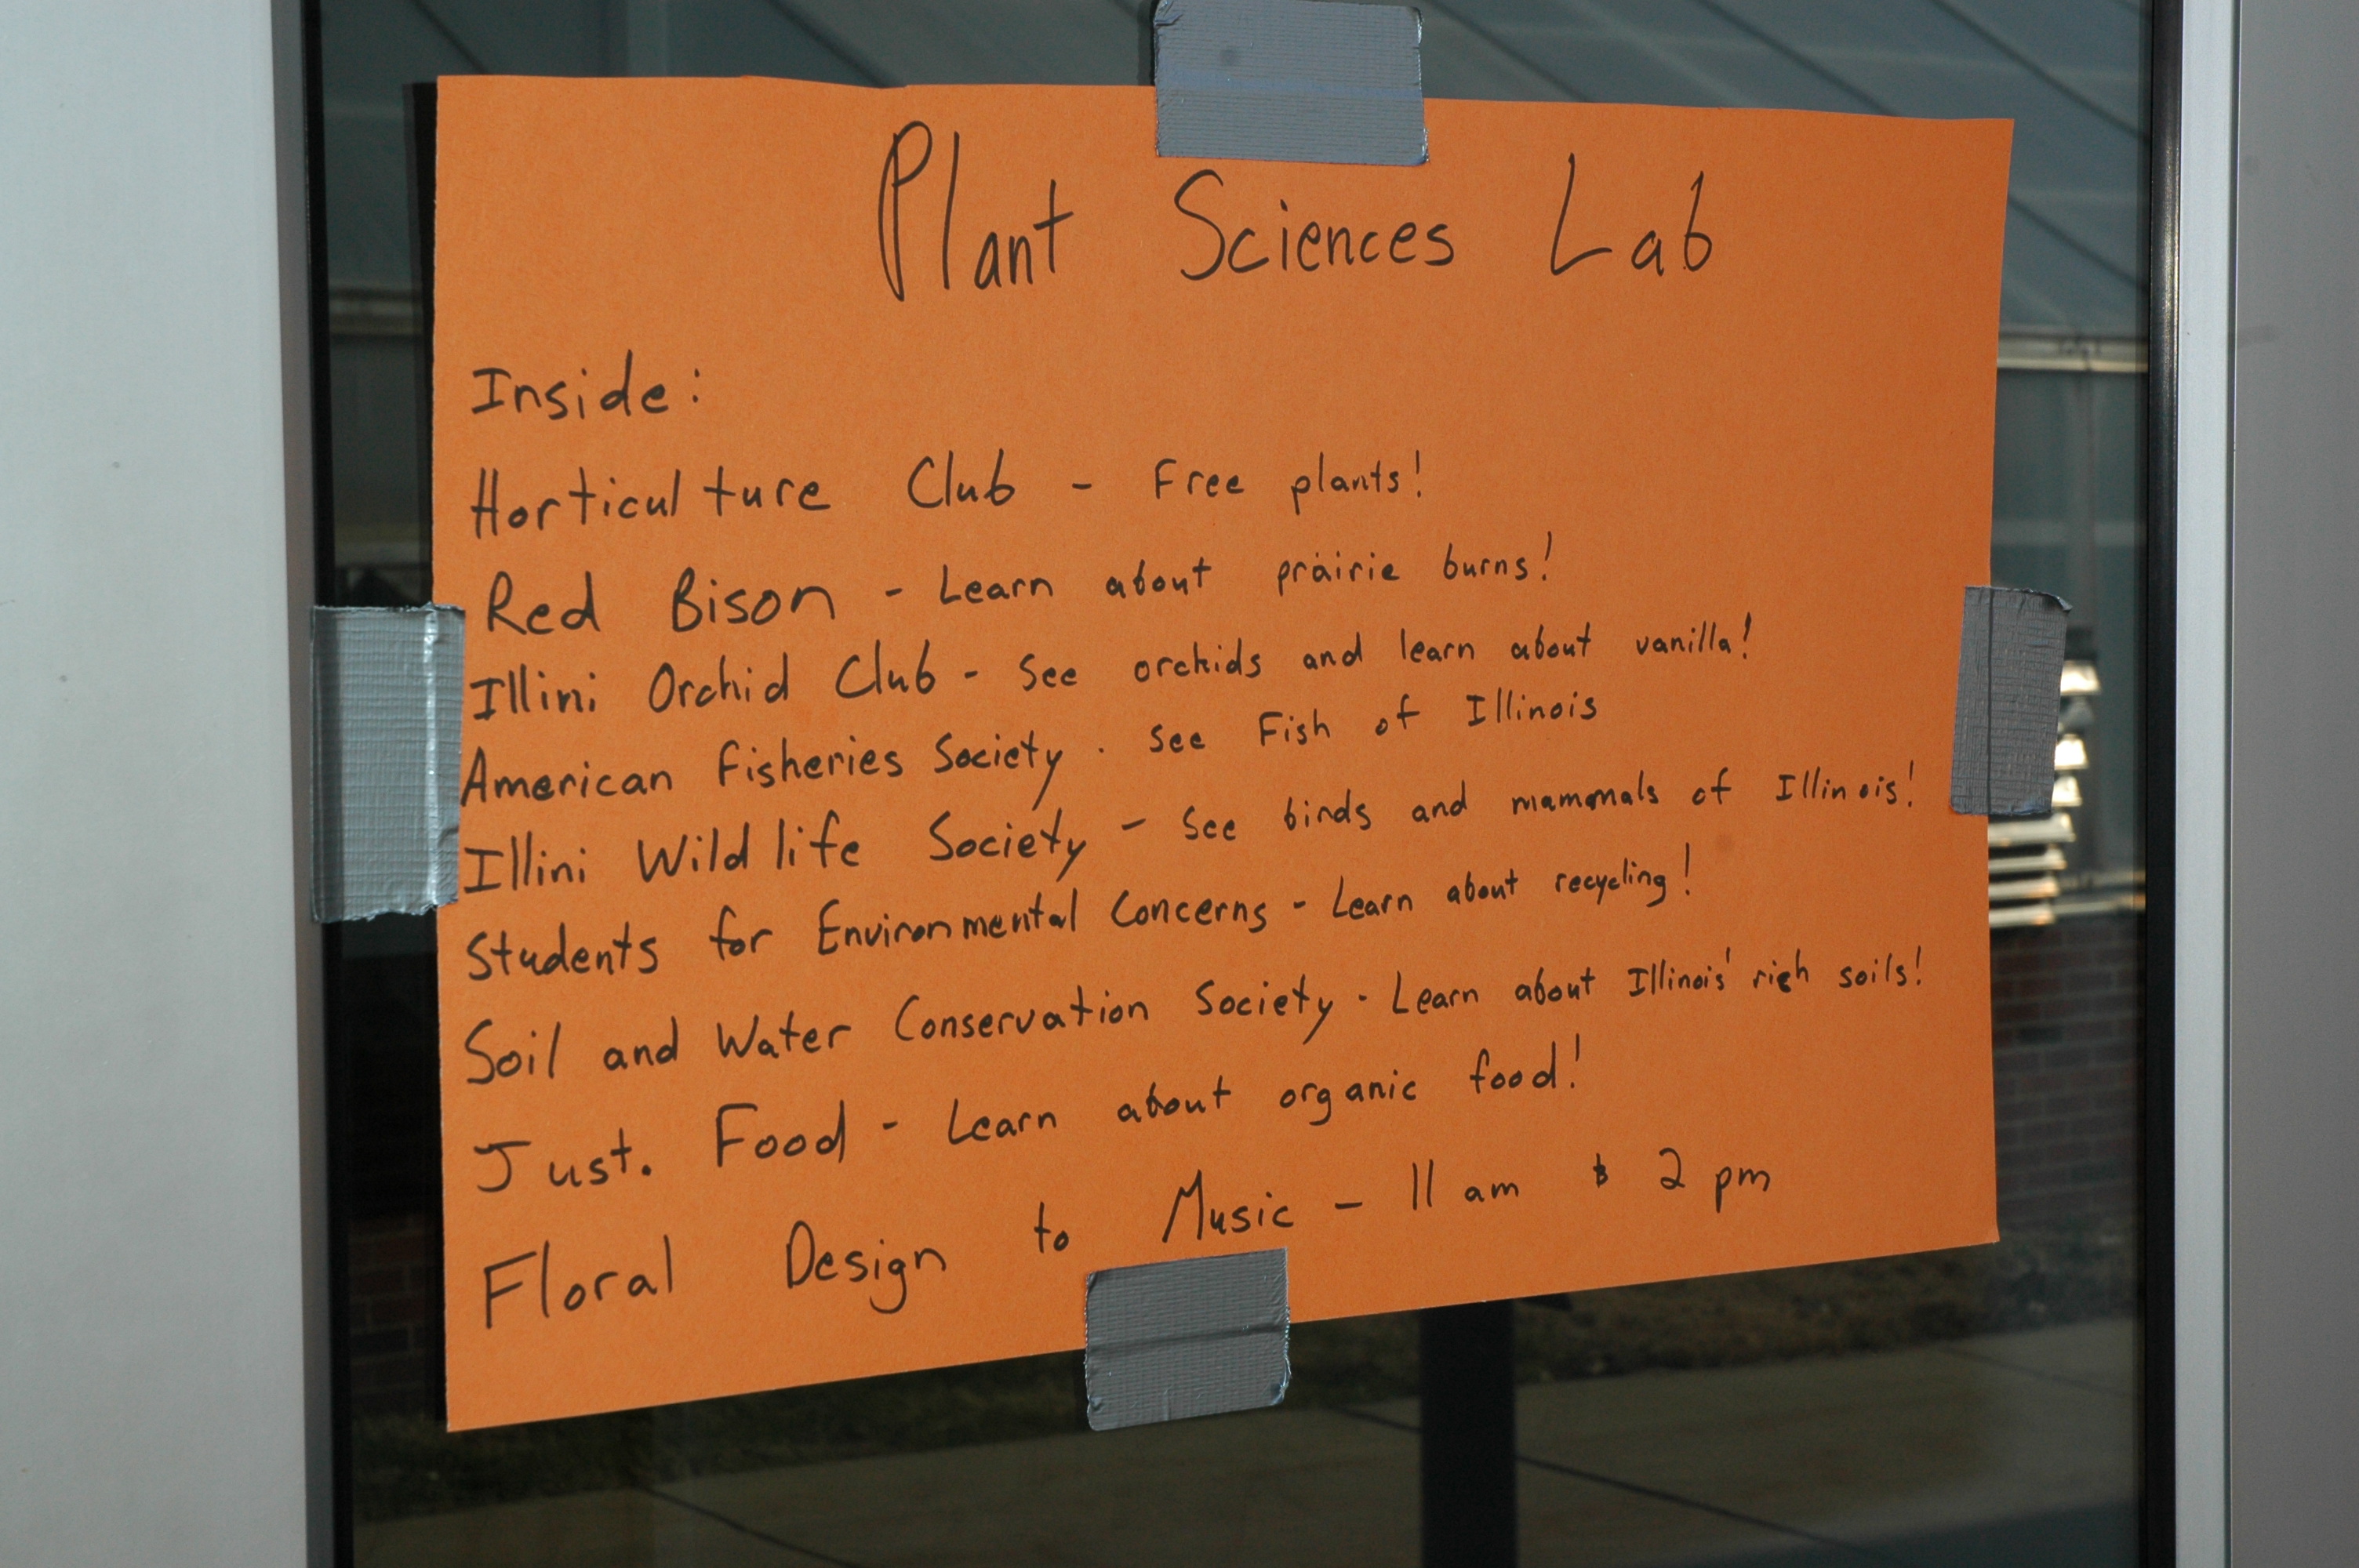 Plant Sciences Lab
Inside:
Horticulture Club - Free plants!
Red Bison - Learn about prairie burns!
Illini Orchid Club - See orchids and learn about vanilla!
American Fisheries Society - See Fish of Illinois
Illini Wildlife Society - See birds and mammals of Illinois!
Students for Environmental Concerns - Learn about recycling!
Soil and Water Conservation Society - Learn about Illinois' rich soils!
Just. Food - Learn about organic food!
Floral Design to Music - 11 am & 2 pm